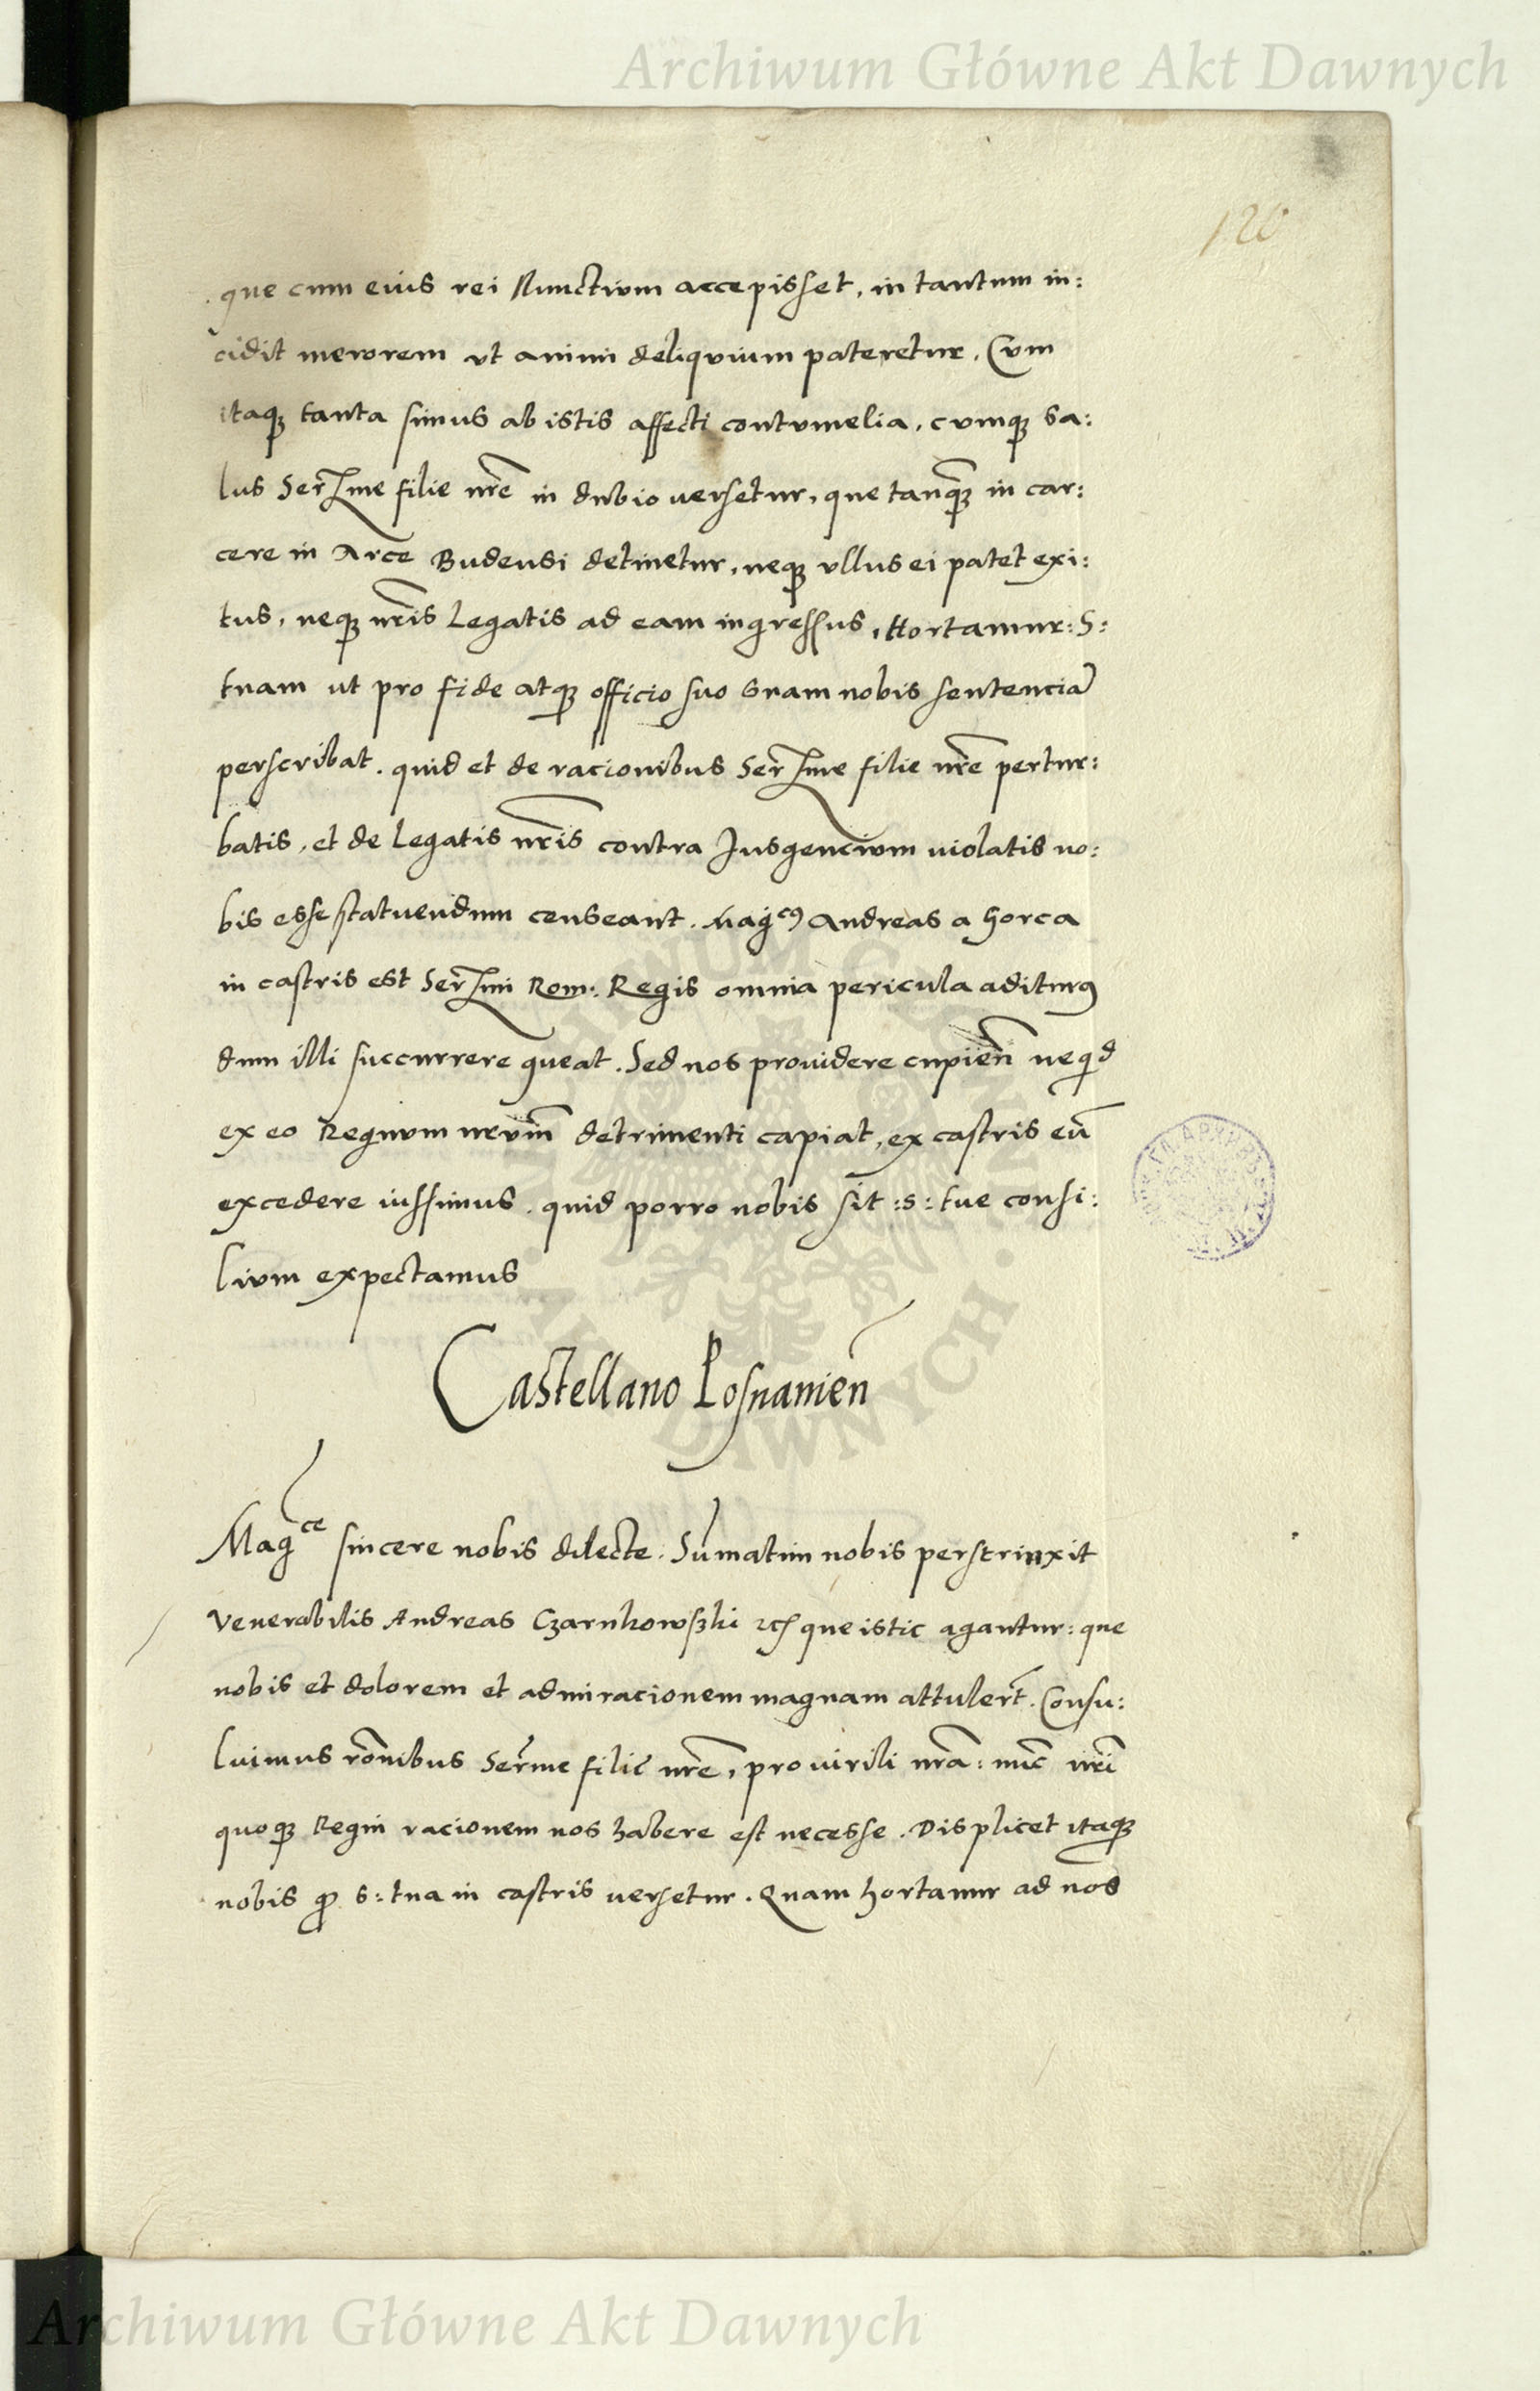 Archiwum Główne Akt Dawnych
120
que cum eius rei Nunctium accepisset, in tantum in:
cidit merorem ut animi deliquium pateretur. Cum
itaqꝫ tanta simus ab istis affecti contumelia, cumqꝫ sa:
lus Serme filie nrē in dubio versetur, que tanqꝫ in car:
cere in Arce Budensi detinetur, neqꝫ ullus ei patet exi:
tus, neqꝫ nrīs Legatis ad eam ingressus, Hortamur: S:
tuam ut pro fide atqꝫ officio suo suam nobis sentenciā
perscribat. quid et de racionibus Serme filie nrē pertur:
batis, et de Legatis nrīs contra Jusgencium violatis no:
bis esse statuendum censeant. Magcus Andreas a Gorca
in castris est Sermi Rom: Regis omnia pericula aditurꝰ
dum illi succurrere queat. Sed nos providere cupień neqd
ex eo Regnum nrūm detrimenti capiat, ex castris eū
excedere iussimus. quid porro nobis sit :s: tue consi:
lium expectamus
Castellano Posnanień
Magce sincere nobis dilecte. Sūmatim nobis perstrinxit
Venerabilis Andreas Czarnkowsżki que istic agantur: que
nobis et dolorem et admiracionem magnam attulert̄. Consu:
luimus rōnibus Serme filie nrē, pro virili nrā: nūc nrī
quoqꝫ Regni racionem nos habere est necesse. Displicet itaqꝫ
nobis qꝫ s: tua in castris versetur. Quam hortamur ad nos
Archiwum Główne Akt Dawnych